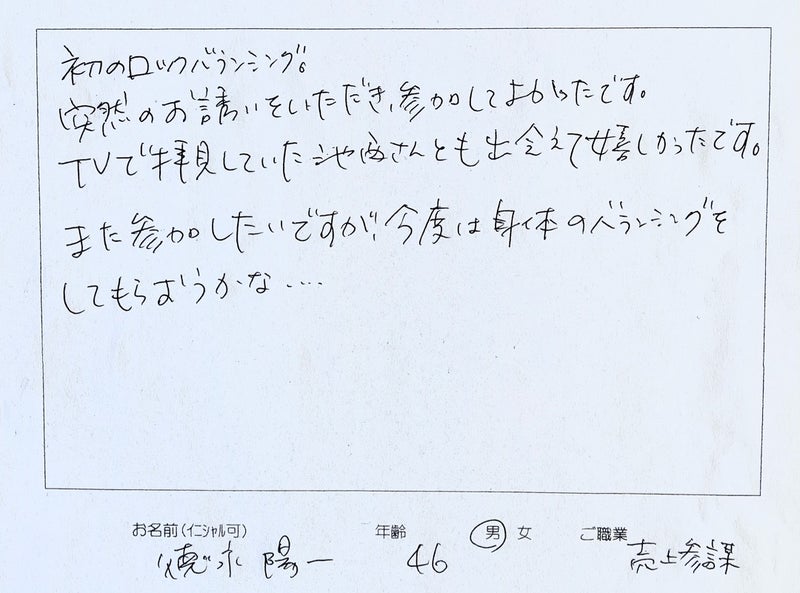 初のロックバランシング。
突然のお誘いをいただき、参加してよかったです。
TVで拝見していた池西さんとも出会えて嬉しかったです。
また参加したいですが、今度は身体のバランシングを
してもらおうかな....
お名前(イニシャル可) 年齢 男 女 ご職業
焼水 陽一 46 売上参謀